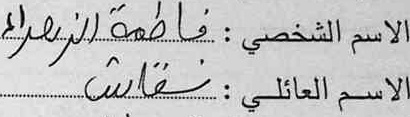 الاسم الشخصي : فاطمة الزهراء
الاسم العائلي : نقاش